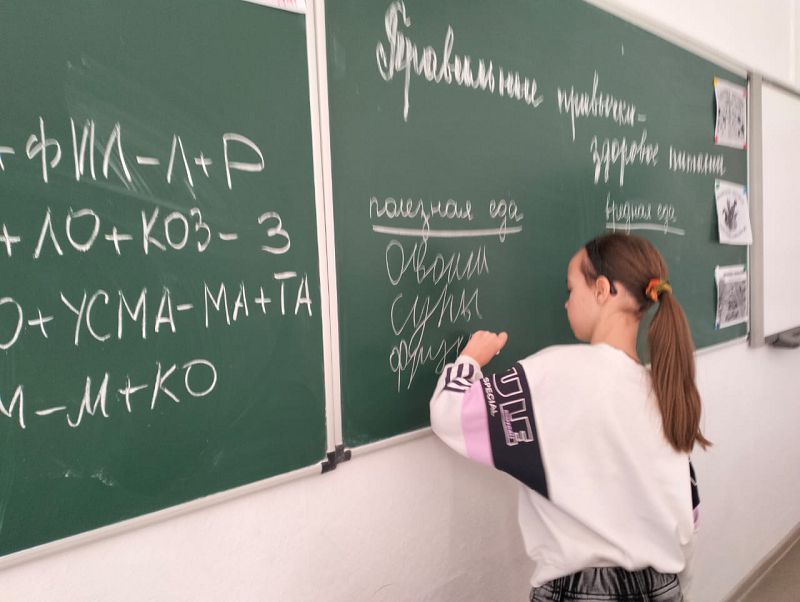 +ФИЛ-Л+Р
+ЛО+КОЗ-З
О+УСМА-МА+ТА
М-М+КО
Правильные привычки-
здоровое питание
полезная еда
овощи
супы
фрук
вредная еда
SPECIAL